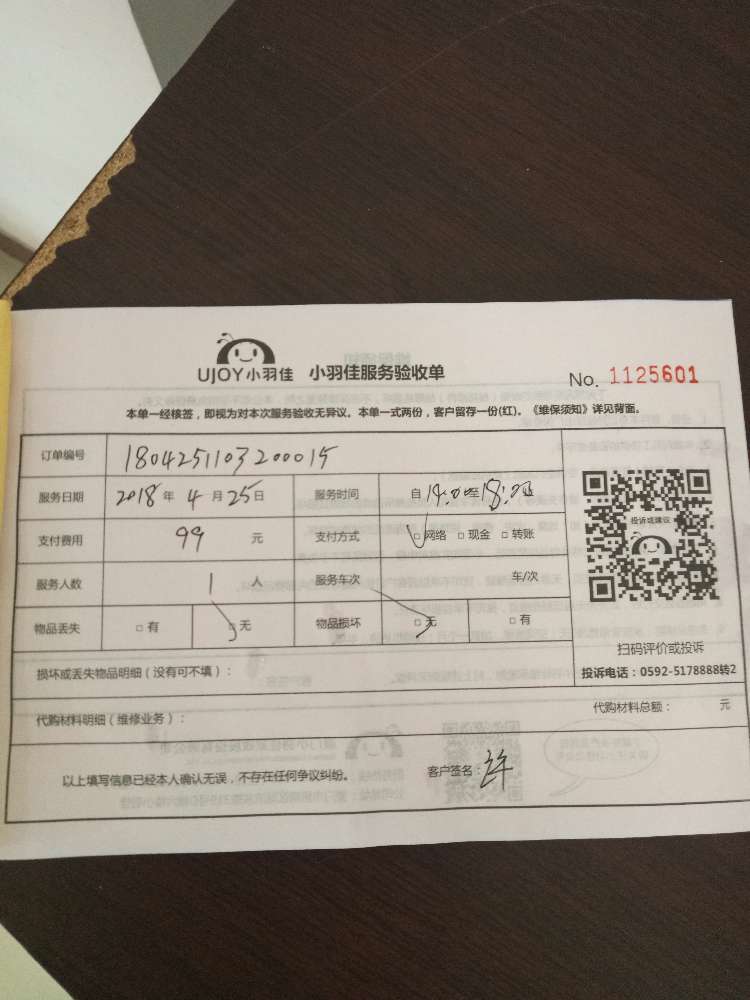 UJOY小羽佳 小羽佳服务验收单 No. 1125601
本单一经核签，即视为对本次服务验收无异议。本单一式两份，客户留存一份(红)。《维保须知》详见背面。
订单编号 1804251103200015
服务日期 2018年4月25日 服务时间 自14:00至18:00
投诉或建议
支付费用 99 元 支付方式 □网络 □现金 □转账
服务人数 1 人 服务车次 车/次
物品丢失 □有 □无 物品损坏 □无 □有
扫码评价或投诉
投诉电话：0592-5178888转2
损坏或丢失物品明细（没有可不填）：
代购材料明细（维修业务）： 代购材料总额： 元
以上填写信息已经本人确认无误，不存在任何争议纠纷。 客户签名：许